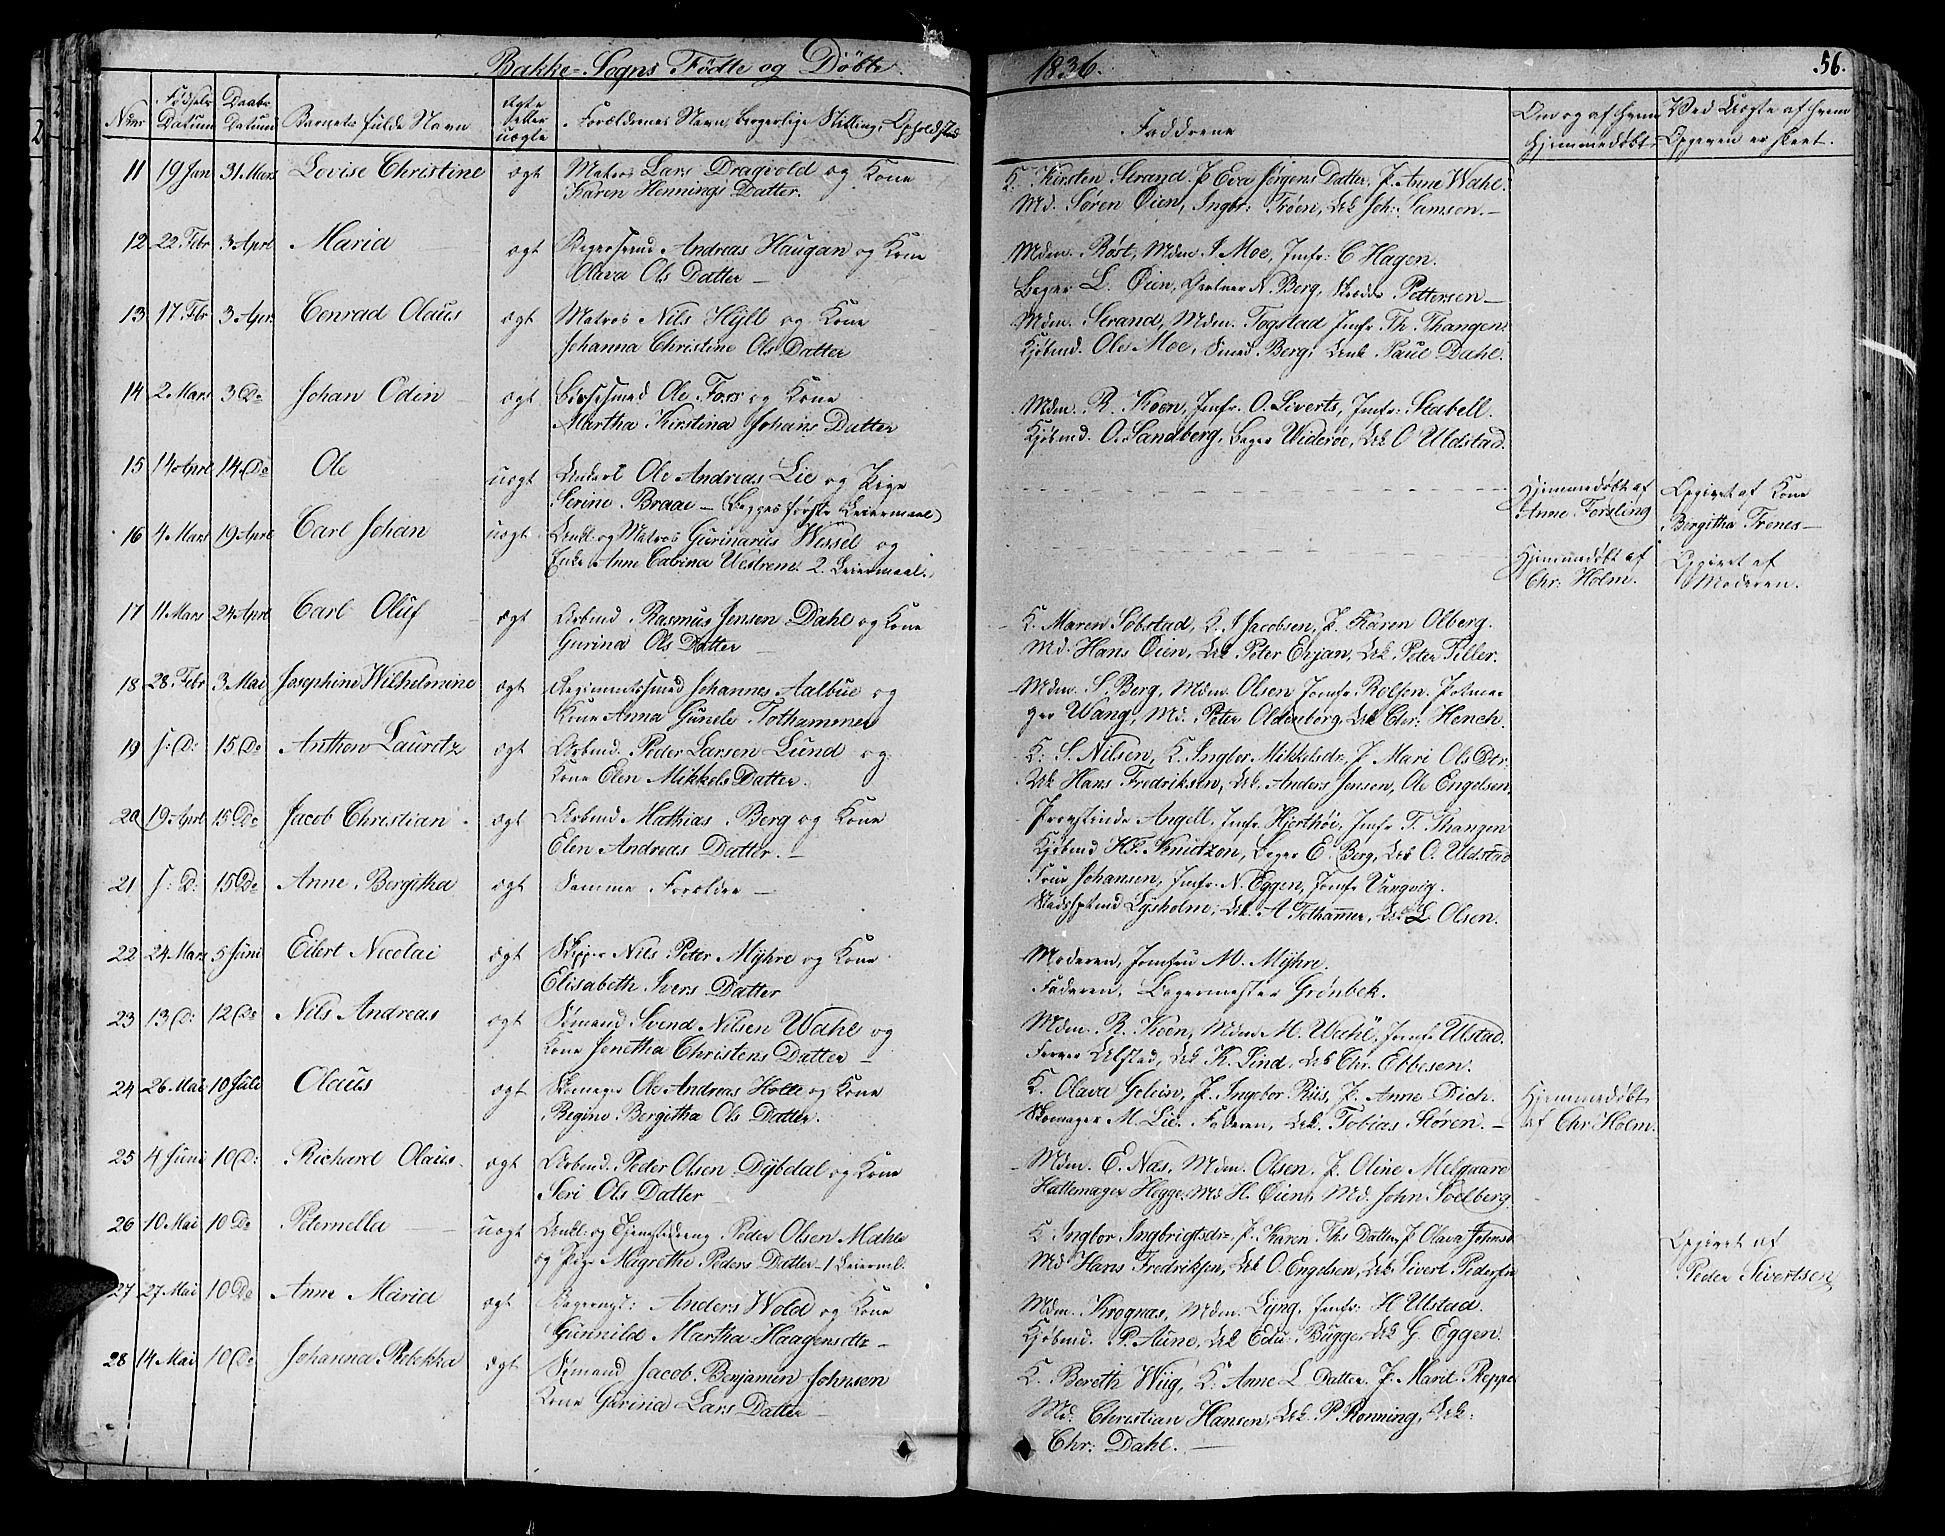 Bakke-Sogns Fødte og Døbte. 1836. 56.
Numr Fødsels Datum Daabs Datum Barnets fulde Navn Ægte eller uægte Forældrenes Navn, borgerlige Stilling, Opholdsted Faddrene Om og af hvem hjemmedøbt Ved Uægte af hvem Opgiven er skeet.
11 19 Jan 31 Mars Lovise Christine ægt Matros Lars Dragvold og Kone
Karen Hennings Datter.
K. Kirsten Strand. P Eva Jørgens Datter. P. Anne Wahl.
Md. Søren Øien, Ingbr: Trøen, Uk Joh: Samsen.—
12 22 Febr 3 Aprl Maria ægt Bagersvend Andreas Haugan og Kone
Olava Ols Datter —
Mdm. Røst, Mdm I Moe, Jmfr: C Hagen.
Bager L. Øien, Gartner N. Berg, Skrædder Pettersen—
13 17 Febr 3 Apr. Conrad Olaus ægt Matros Nils Hÿll og Kone
Johanna Christine Ols Datter
Mdm. Strand, Mdm. Togstad Jmfr Th. Thangen.
Kjøbmd. Ole Moe, Smed Berg, Uk Paul Dahl.
14 2 Mars 3 Do Johan Odin ægt Bøssesmed Ole Fors og Kone
Martha Kirstina Johans Datter
Mdm. R. Koen, Jmfr. O. Siverts, Jmfr: Stabell.
Kjøbmd. O. Sandberg, Bager Widerøe, Uk O Uldstad.
15 14 Aprl 14 Do Ole uægt Underl Ole Andreas Lie og Pige
Serine Braae — (begges første Leiermaal)
Hjemmedøbt af
Anne Forsling
Opgivet af Kone
Bergitha Trenes—
16 4 Mars 19 Aprl Carl Johan uægt Unkl. og Matros Gurinarus Wessel og
Enke Anne Cabrina Uestrem. 2. Leiermaal.
Hjemmedøbt af
Chr: Holm.
Opgivet af
Moderen.
17 11 Mars 24 Aprl Carl Oluf ægt Arbmd. Rasmus Jensen Dahl og Kone
Gurina Ols Datter —
K. Maren Søbstad, K. I Jacobsen, P. Karen Olberg.
Md. Hans Øien, Uk Peter Erjan, Uk. Peter Tiller.
18 28. Febr 3 Mai Josephine Wilhelmine ægt Regimentssmed Johannes Aalbue og
Kone Anna Gunele Tothammer
Mdm. S. Berg, Mdm. Olsen Jomfr Rolfsen, Potma-
ger Wang, Md. Peter Oldenborg, Uk Chr: Hench.
19 S: D: 15 Do Anthon Lauritz ægt Arbmd. Peder Larsen Lund og
Kone Elen Mikkels Datter.
K: S. Nilsen, K. Ingbor Mikkelsdr, P Mari Ols Dtr.
Uk Hans Fredriksen, Uk. Anders Jensen, Ole Engelsen
20 19 Aprl 15 Do Jacob Christian ægt Arbmd Mathias Berg og Kone
Elen Andreas Datter.—
Provstinde Angell, Jmfr. Hjerthøi, Jmfr T. Thangen
Kjøbmd H.F. Knudtzon, Bager E. Berg, Uk O. Uldstad
21 S: D: 15 Do Anne Bergitha ægt Samme Forældre —
Frue Johansen, Jmfr. N. Eggen, Jomfr Vangvig.
Stadshptmd Lysholm, Uk. A Tothammer, Uk L Olsen.
22 24 Mars 5 Juni Eilert Nicolai ægt Skipper Nils Peter Mÿhre og Kone
Elisabeth Ivers Datter
Moderen, Jomfru M. Mÿhre.
Faderen, Bagermester Grønbek.
23 13 D: 12 Do Nils Andreas ægt Sømand Svend Nilsen Wahl og
Kone Jenetha Christens Datter—
Mdm. R. Koen, Mdm. M. Wahl, Jomfr Ulstad.
Farver Ulstad, Uk K. Lind, Uk Chr. Ebbesen.
24 26 Mai 10 Juli Olaus ægt Skomager Ole Andreas Holte og Kone
Regine Bergitha Ols Datter.
K. Olava Gelein, P. Ingebor Riis, P. Anne Dich.
Skomager M. Lie. Faderen, Uk. Tobias Støren.—
Hjemmedøbt
af Chr Holm.
25 4 Juni 10 D: Richard Olaus ægt Arbmd. Peder Olsen Dÿbdal og Kone
Seri Ols Datter
Mdm. E. Næs, Mdm. Olsen. P. Oline Melgaare
Hattemager Hegge, Md H. Øien, Md. John Solberg.
26 10 Mai 10 Do Peternella uægt Unkl. og Tjenestedreng Peder Olsen Mæhle
og Pige Magrethe Peders Datter—1 Leierml.
K Ingbor Ingbrigtsdr, P. Karen Ths Datter, P Olava Johnsd
Md Hans Fredriksen, Uk O. Engelsen, Uk. Sivert Pedersen
Opgivet af
Peder Sivertsen
27 27 Mai 10 Do Anne Maria ægt Anders Wold og Kone
Gunnild Martha Haagensdtr—
Mdm. Krognæs, Mdm. Lÿng, Jmfr: H Ulstad.
Kjøbmd. P. Aune, Uk Edv. Bugge, Uk G. Eggen.
28 14 Mai 10 Do Johanna Rebekka ægt Sømand Jacob Benjamin Johnsen
Kone Gurina Lars Datter—
K. Bereth Wiig, K: Anne L Datter. P. Marit Reppe
Md. Christian Hansen, Uk. P Rønning, Uk:
Chr: Dahl.—